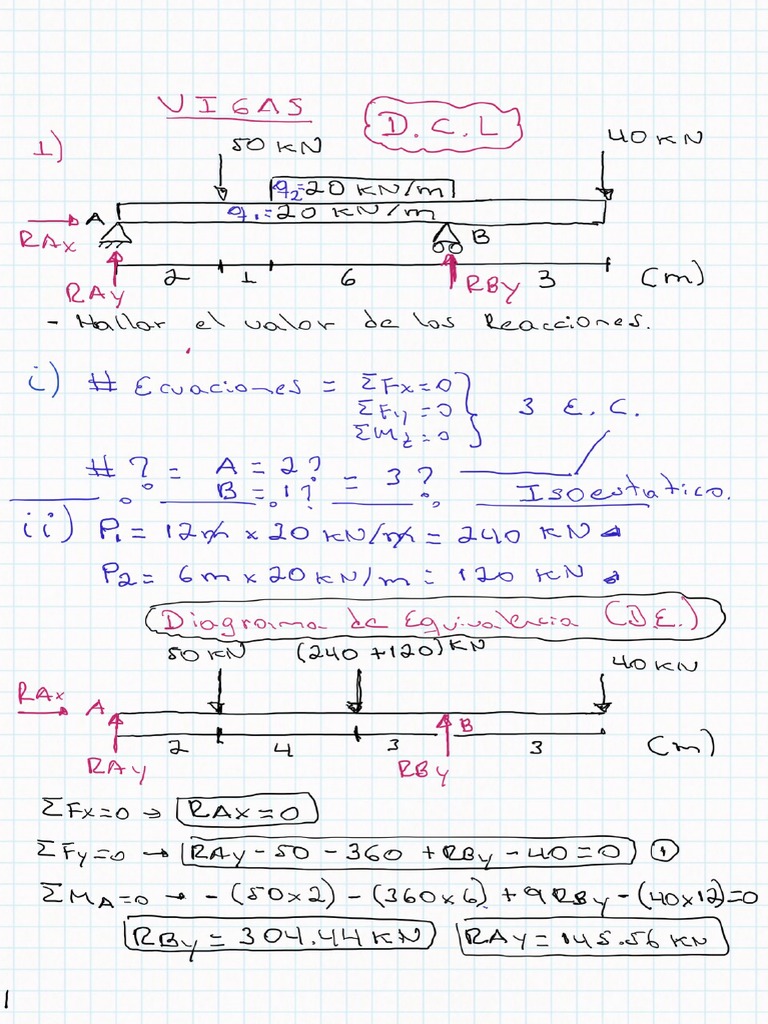 VIGAS
D.C.L
1)
50 KN
40 KN
q2=20 KN/m
q1=20 KN/m
A
B
RAx
RAy
RBy
2
1
6
3
(m)
- Hallar el valor de las Reacciones.
i) # Ecuaciones = ΣFx=0
ΣFy=0
ΣMz=0
3 E.C.
# ? = A = 2?
B = 1?
= 3?
Isoestatico.
ii) P1= 12m x 20 KN/m = 240 KN
P2= 6m x 20 KN/m = 120 KN
Diagrama de Equivalencia (D.E.)
50 KN
(240+120) KN
40 KN
RAx
A
B
RAy
RBy
2
4
3
3
(m)
ΣFx=0 → RAx=0
ΣFy=0 → RAy-50-360+RBy-40=0 ①
ΣMA=0 → -(50x2)-(360x6)+9RBy-(40x12)=0
RBy=304.44 KN
RAy=145.56 KN
1